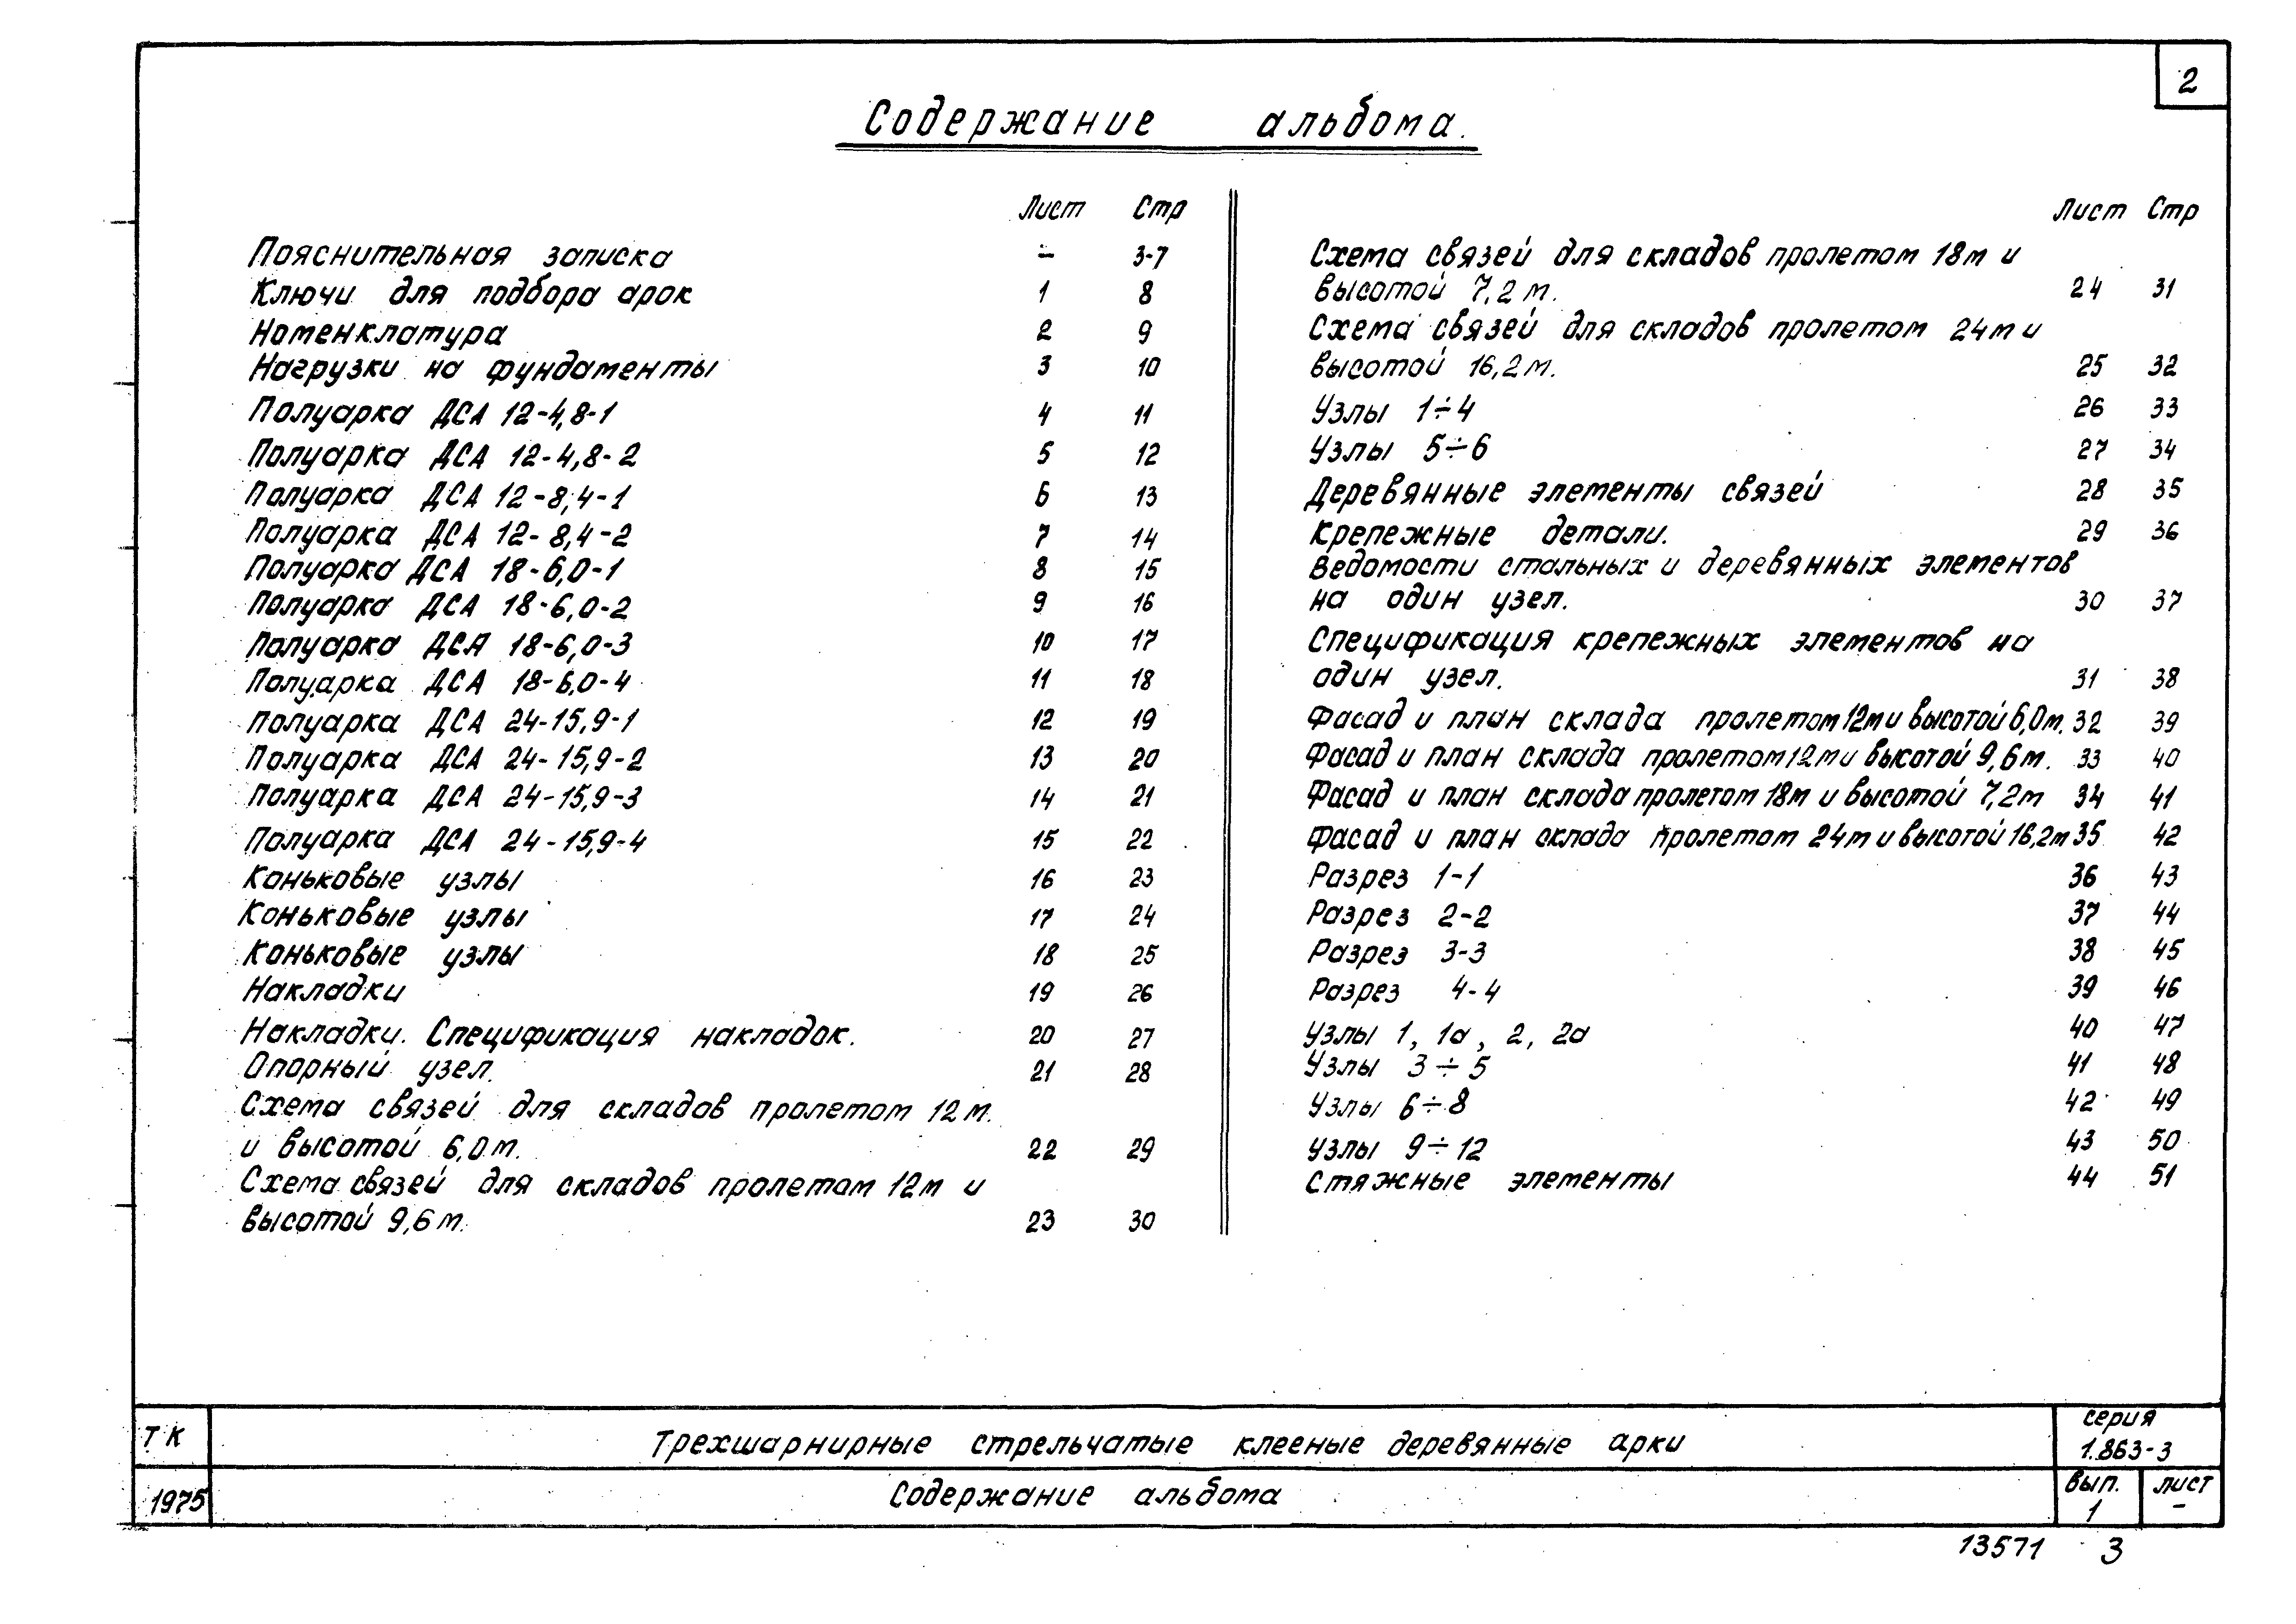 2
Содержание альбома.
Лист Стр
Пояснительная записка – 3-7
Ключи для подбора арок 1 8
Номенклатура 2 9
Нагрузки на фундаменты 3 10
Полуарка ДСА 12-4,8-1 4 11
Полуарка ДСА 12-4,8-2 5 12
Полуарка ДСА 12-8,4-1 6 13
Полуарка ДСА 12-8,4-2 7 14
Полуарка ДСА 18-6,0-1 8 15
Полуарка ДСА 18-6,0-2 9 16
Полуарка ДСА 18-6,0-3 10 17
Полуарка ДСА 18-6,0-4 11 18
Полуарка ДСА 24-15,9-1 12 19
Полуарка ДСА 24-15,9-2 13 20
Полуарка ДСА 24-15,9-3 14 21
Полуарка ДСА 24-15,9-4 15 22
Коньковые узлы 16 23
Коньковые узлы 17 24
Коньковые узлы 18 25
Накладки 19 26
Накладки. Спецификация накладок. 20 27
Опорный узел. 21 28
Схема связей для складов пролетом 12 м.
и высотой 6,0 м. 22 29
Схема связей для складов пролетом 12м и
высотой 9,6 м. 23 30
Лист Стр
Схема связей для складов пролетом 18м и
высотой 7,2 м. 24 31
Схема связей для складов пролетом 24м и
высотой 16,2 м. 25 32
Узлы 1÷4 26 33
Узлы 5÷6 27 34
Деревянные элементы связей 28 35
Крепежные детали. 29 36
Ведомости стальных и деревянных элементов
на один узел. 30 37
Спецификация крепежных элементов на
один узел. 31 38
Фасад и план склада пролетом 12м и высотой 6,0м. 32 39
Фасад и план склада пролетом 12м и высотой 9,6 м. 33 40
Фасад и план склада пролетом 18м и высотой 7,2м 34 41
Фасад и план склада пролетом 24м и высотой 16,2м 35 42
Разрез 1-1 36 43
Разрез 2-2 37 44
Разрез 3-3 38 45
Разрез 4-4 39 46
Узлы 1, 1а, 2, 2а 40 47
Узлы 3÷5 41 48
Узлы 6÷8 42 49
Узлы 9÷12 43 50
Стяжные элементы 44 51
ТК
1975
Трехшарнирные стрельчатые клееные деревянные арки
Содержание альбома
серия
1.863-3
вып. лист
1 –
13571 3